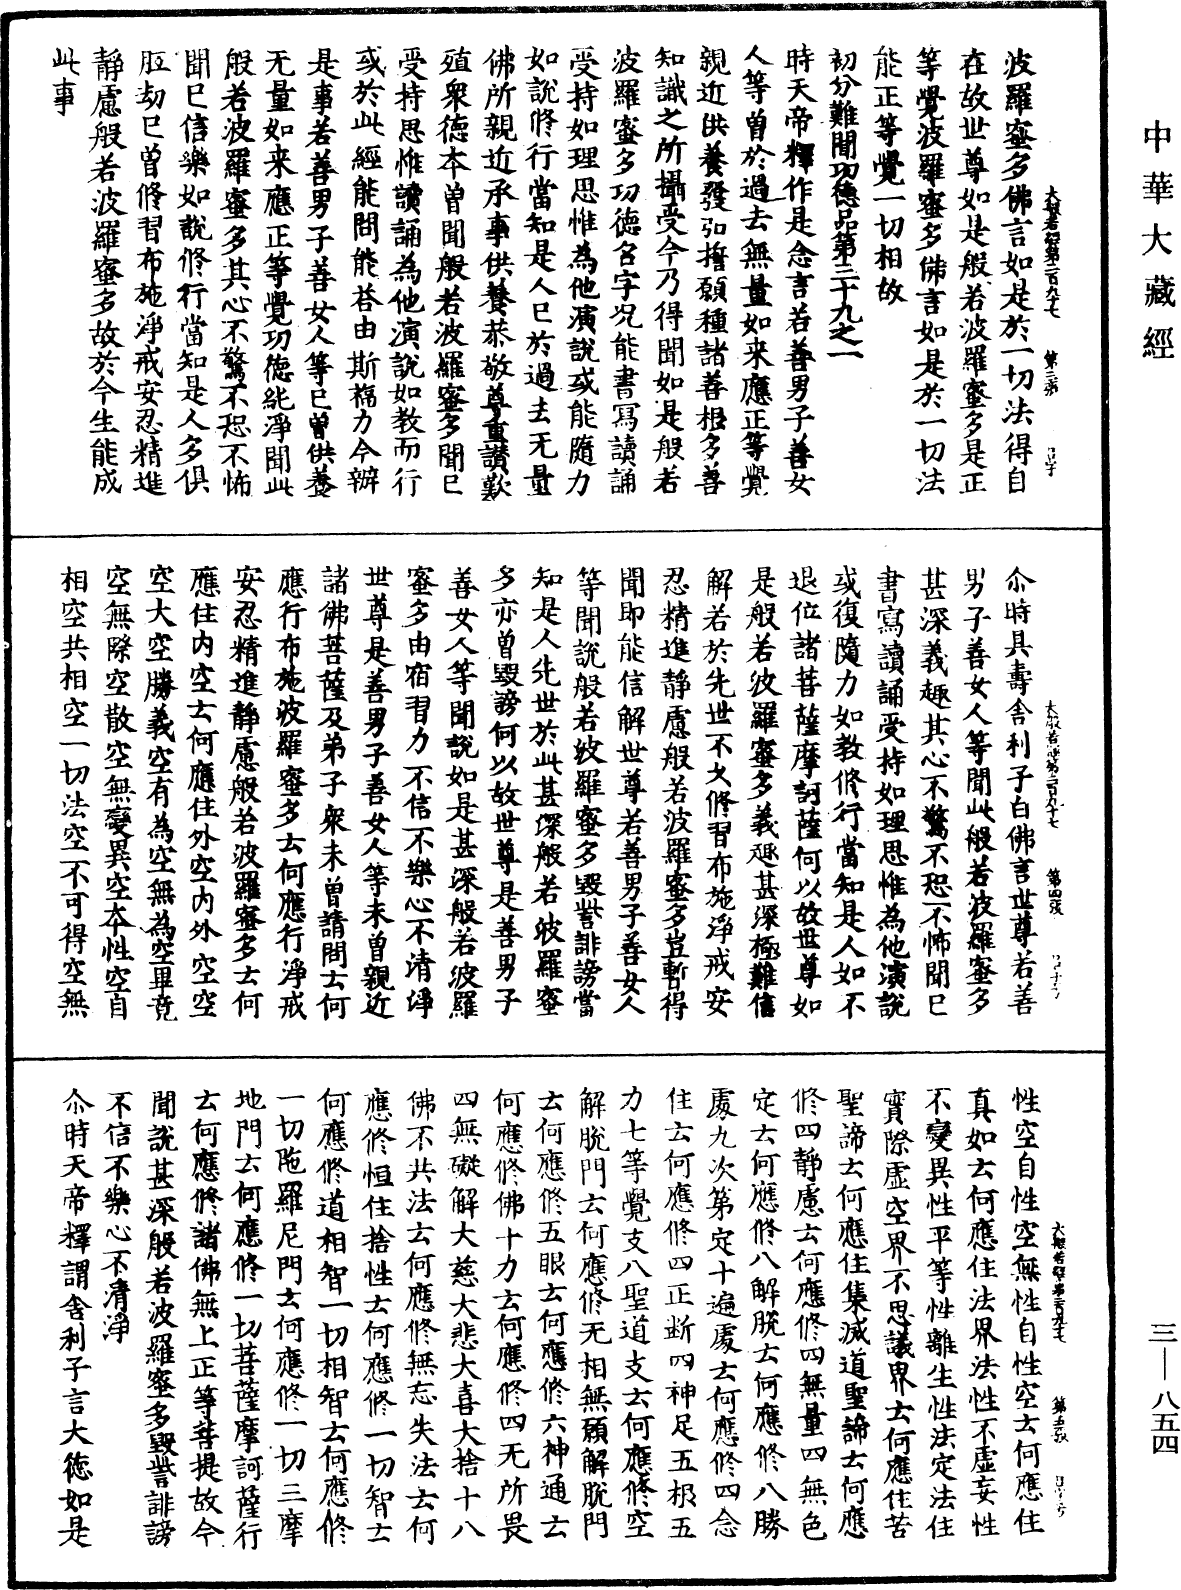 中華大藏經
三—八五四
波羅蜜多佛言如是於一切法得自
在故世尊如是般若波羅蜜多是正
等覺波羅蜜多佛言如是於一切法
能正等覺一切相故
初分難聞功德品第三十九之一
時天帝釋作是念言若善男子善女
人等曾於過去無量如来應正等覺
親近供養發弘誓願種諸善根多善
知識之所攝受今乃得聞如是般若
波羅蜜多功德名字况能書寫讀誦
受持如理思惟為他演說或能隨力
如說修行當知是人已於過去无量
佛所親近承事供養恭敬尊重讃歎
殖衆德本曾聞般若波羅蜜多聞已
受持思惟讀誦為他演說如教而行
或於此經能問能荅由斯福力今辦
是事若善男子善女人等已曾供養
无量如来應正等覺功德純淨聞此
般若波羅蜜多其心不驚不恐不怖
聞已信樂如說修行當知是人多俱
胝劫已曾修習布施淨戒安忍精進
靜慮般若波羅蜜多故於今生能成
此事
大般若經第二百九十七 第三張
尒時具壽舍利子白佛言世尊若善
男子善女人等聞此般若波羅蜜多
甚深義趣其心不驚不恐不怖聞已
書寫讀誦受持如理思惟為他演說
或復隨力如教修行當知是人如不
退位諸菩薩摩訶薩何以故世尊如
是般若波羅蜜多義趣甚深極難信
解若於先世不久修習布施淨戒安
忍精進靜慮般若波羅蜜多豈暫得
聞即能信解世尊若善男子善女人
等聞說般若波羅蜜多毀訾誹謗當
知是人先世於此甚深般若波羅蜜
多亦曾毀謗何以故世尊是善男子
善女人等聞說如是甚深般若波羅
蜜多由宿習力不信不樂心不清淨
世尊是善男子善女人等未曾親近
諸佛菩薩及弟子衆未曾請問云何
應行布施波羅蜜多云何應行淨戒
安忍精進靜慮般若波羅蜜多云何
應住內空云何應住外空內外空空
空大空勝義空有為空無為空畢竟
空無際空散空無變異空本性空自
相空共相空一切法空不可得空無
大般若經第二百九十七 第四張
性空自性空無性自性空云何應住
真如云何應住法界法性不虛妄性
不變異性平等性離生性法定法住
實際虛空界不思議界云何應住苦
聖諦云何應住集滅道聖諦云何應
修四靜慮云何應修四無量四無色
定云何應修八解脫云何應修八勝
處九次第定十遍處云何應修四念
住云何應修四正断四神足五根五
力七等覺支八聖道支云何應修空
解脫門云何應修无相無願解脫門
云何應修五眼云何應修六神通云
何應修佛十力云何應修四无所畏
四無礙解大慈大悲大喜大捨十八
佛不共法云何應修無忘失法云何
應修恒住捨性云何應修一切智云
何應修道相智一切相智云何應修
一切陁羅尼門云何應修一切三摩
地門云何應修一切菩薩摩訶薩行
云何應修諸佛無上正等菩提故今
聞說甚深般若波羅蜜多毀訾誹謗
不信不樂心不清淨
尒時天帝釋謂舍利子言大德如是
大般若經第二百九十七 第五張